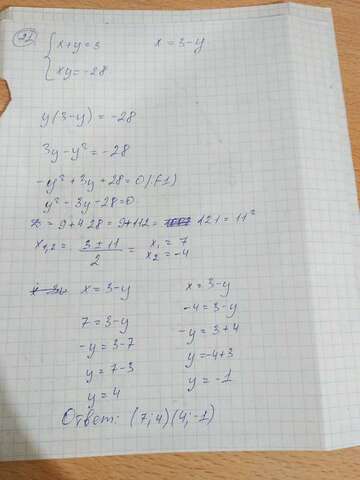 21
{ x+y=3    x=3-y
{ xy=-28
y(3-y)=-28
3y-y²=-28
-y²+3y+28=0 /(-1)
y²-3y-28=0
D=9+4·28=9+112= 121=11²
x₁,₂= (3±11)/2 = x₁=7 x₂=-4
x=3-y    x=3-y
7=3-y    -4=3-y
-y=3-7    -y=3+4
y=7-3    y=-4+3
y=4    y=-1
Ответ: (7;4)(4;-1)